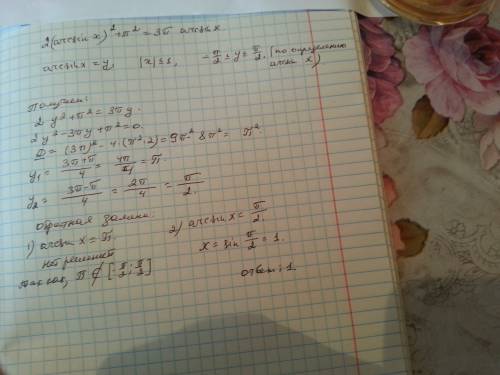 2(arcsin x)² + π² = 3π arcsin x.
arcsin x = y, |x| ≤ 1, -π/2 ≤ y ≤ π/2, (по определению
arcsin x)
Получаем:
2y² + π² = 3πy.
2y² - 3πy + π² = 0.
D = (3π)² - 4·(π²·2) = 9π² - 8π² = π².
y₁ = (3π+π)/4 = 4π/4 = π
y₂ = (3π-π)/4 = 2π/4 = π/2.
Обратная замена:
1) arcsin x = π. 2) arcsin x = π/2,
нет решений x = sin π/2 = 1.
так как, π ∉ [-π/2; π/2]
ответ: 1